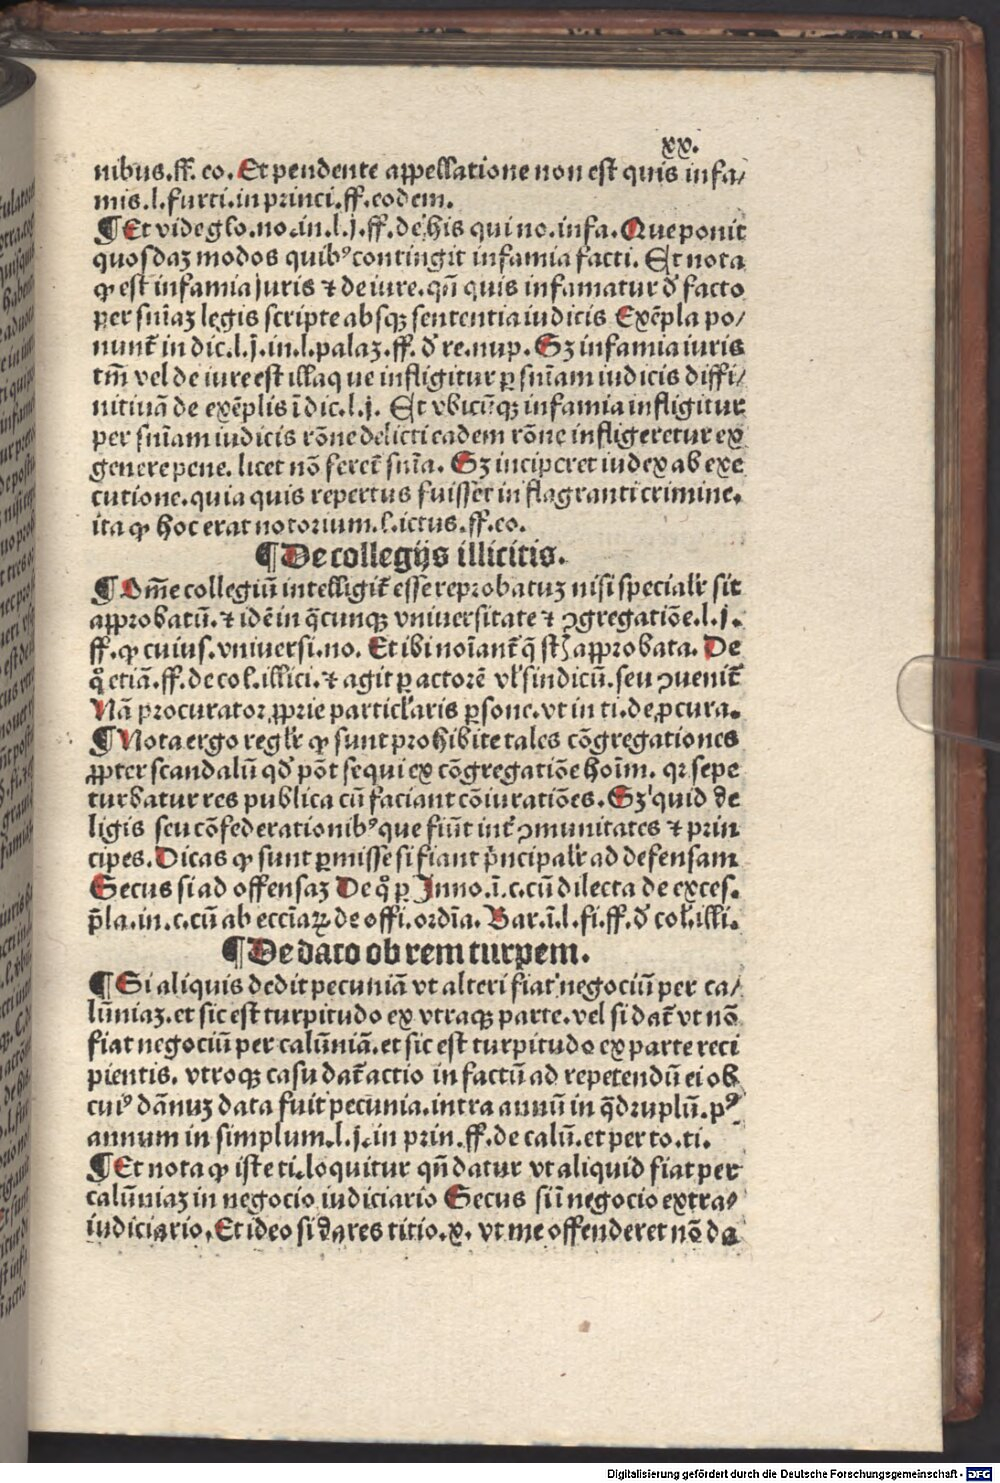 xx.
nibus.ff. eo. Et pendente appellatione non est quis infa/
mis.l.furti.in princi.ff.eodem.
¶ Et vide glo.no.in.l.j.ff.de his qui no.infa. Que ponit
quosdaʒ modos quibꝰ contingit infamia facti. Et nota
ꝙ est infamia juris ⁊ de iure.qñ quis infamatur đ facto
per sniaʒ legis scripte absqʒ sententia iudicis Exēpla po/
nunt̄ in dic.l.j.in.l.palaʒ.ff.đ re.nup. Sʒ infamia iuris
tm̄ vel de iure est illa que infligitur ꝑ sniam iudicis diffi/
nitiuā de exēplis ī dic.l.j. Et vbicūqʒ infamia infligitur
per sniam iudicis rōne delicti eadem rōne infligeretur ex
genere pene. licet nō feret̄ snia. Sʒ inciperet iudex ab exe
cutione.quia quis repertus fuisset in flagranti crimine.
ita ꝙ hoc erat notorium.l.ictus.ff.eo.
¶ De collegijs illicitis.
¶ Om̄e collegiū intelligit̄ esse reprobatuʒ nisi specialr̄ sit
approbatū.⁊ idē in q̄cunqʒ vniuersitate ⁊ ꝯgregatiōe.l.j.
ff.ꝙ cuius.vniuersi.no. Et ibi noīant̄ q̄ st̄ approbata. De
q̊ etiā.ff.de col.illici.⁊ agit ꝑ actorē vl̓ sindicū.seu ꝯuenit̄
Nā procurator ꝓprie particl̓aris ꝑsone.vt in ti.de ꝓcura.
¶ Nota ergo regl̓r ꝙ sunt prohibite tales cōgregationes
ꝓpter scandalū qđ pōt sequi ex cōgregatiōe hoīm. qꝛ sepe
turbatur res publica cū faciant cōiuratiōes. Sʒ quid de
ligis seu cōfederationibꝰ que fiūt int̄ ꝯmunitates ⁊ prin
cipes. Dicas ꝙ sunt ꝑmisse si fiant p̄ncipalr̄ ad defensam
Secus si ad offensaʒ De q̊ ꝑ Inno.ī.c.cū dilecta de exces.
p̄la.in.c.cū ab eccīaꝝ de offi.ordīa. Bar.ī.l.fi.ff.đ col̓.illi.
¶ De dato ob rem turpem.
¶ Si aliquis dedit pecuniā vt alteri fiat negociū per ca/
lūniaʒ.et sic est turpitudo ex vtraqʒ parte.vel si dat̄ vt nō
fiat negociū per calūniā.et sic est turpitudo ex parte reci
pientis. vtroqʒ casu dat̄ actio in factū ad repetendū ei ob
cuiꝰ dānuʒ data fuit pecunia.intra annū in q̄druplū.pꝰ
annum in simplum.l.j.in prin.ff.de calū.et per to.ti.
¶ Et nota ꝙ iste ti.loquitur qn̄ datur vt aliquid fiat per
calūniaʒ in negocio iudiciario Secus si ī negocio extra/
iudiciario. Et ideo si dares titio.x. vt me offenderet nō da
Digitalisierung gefördert durch die Deutsche Forschungsgemeinschaft - DFG